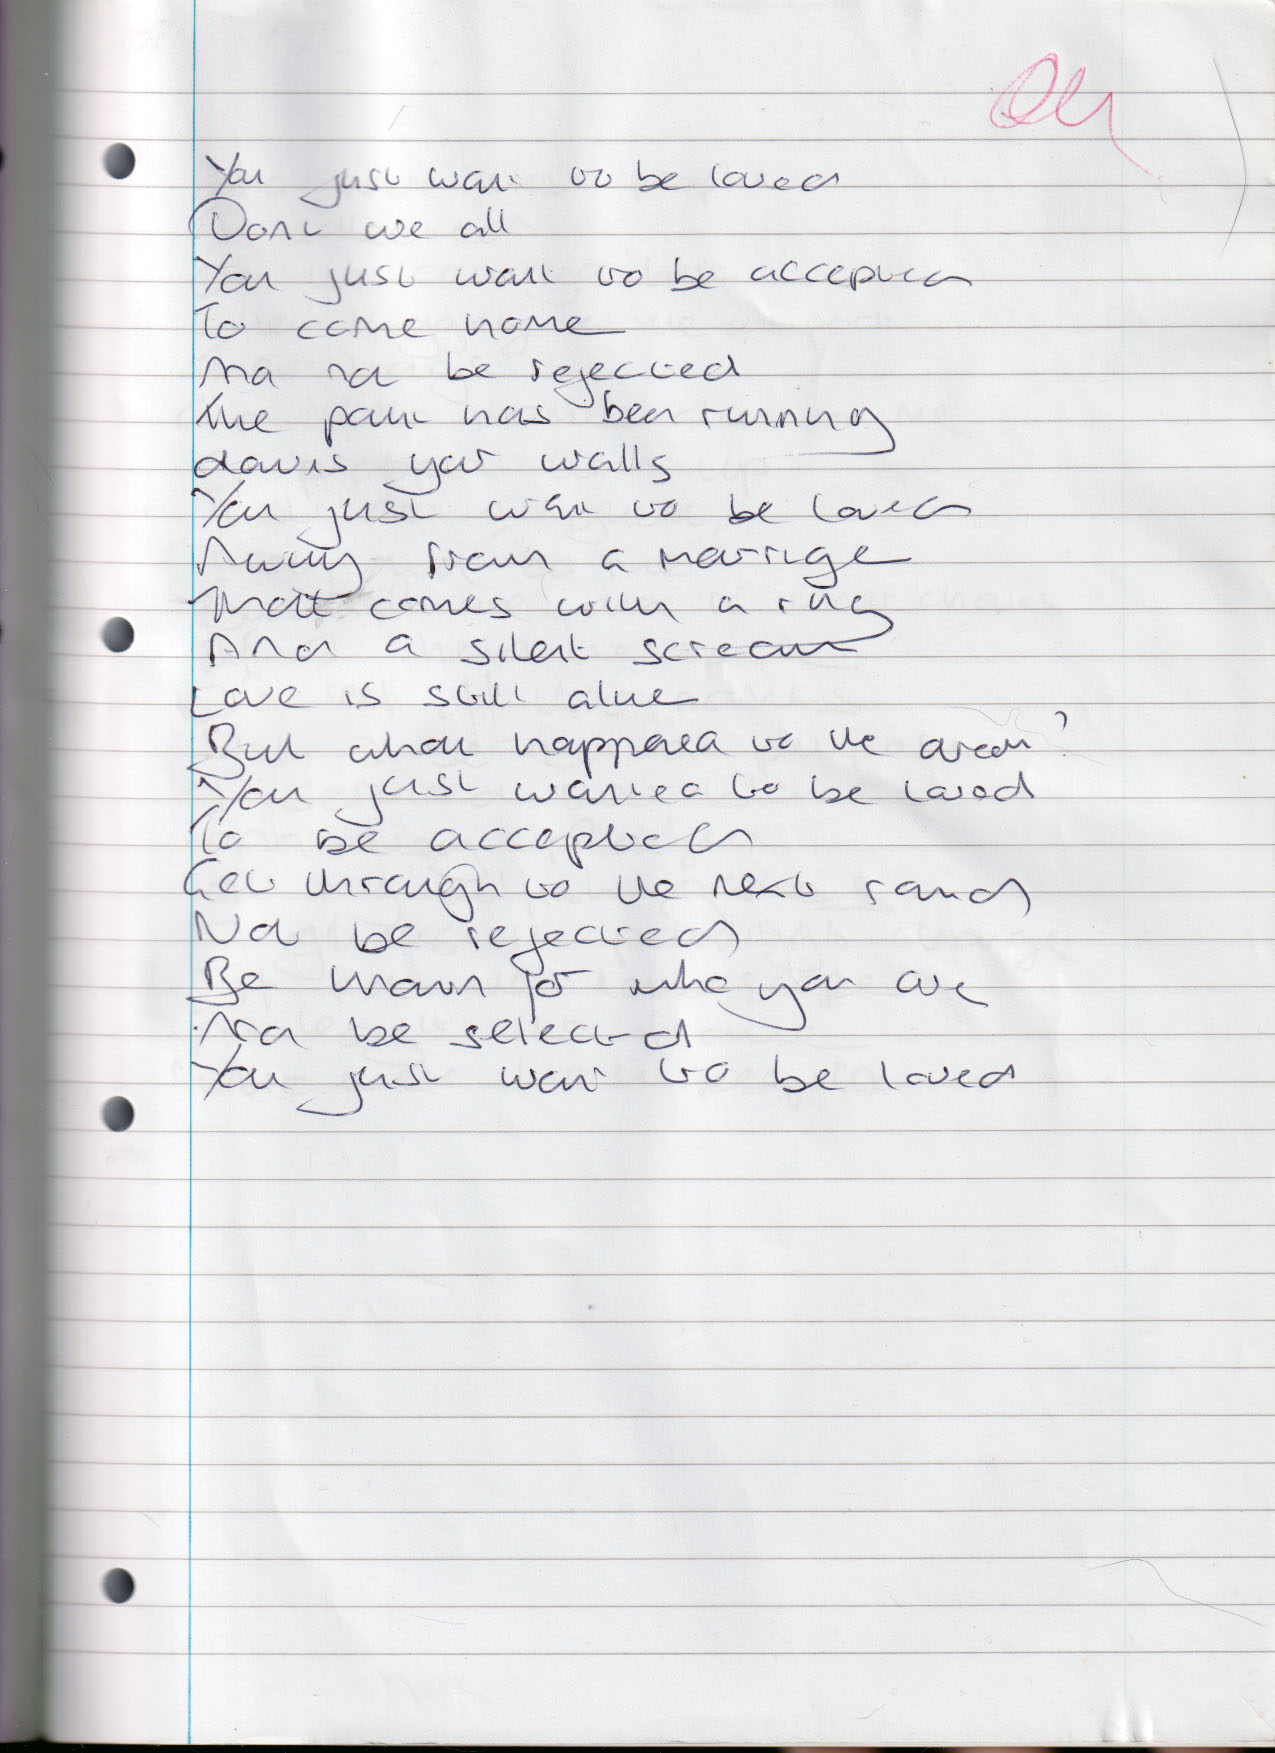 You just want to be loved
Dont we all
You just want to be accepted
To come home
And not be rejected
The paint has been running
down your walls
You just want to be loved
Away from a marrige
That comes with a ring
And a silent scream
Love is still alive
But what happened to the dream?
You just wanted to be loved
To be accepted
Get through to the next round
Not be rejected
Be known for who you are
And be selected
You just want to be loved